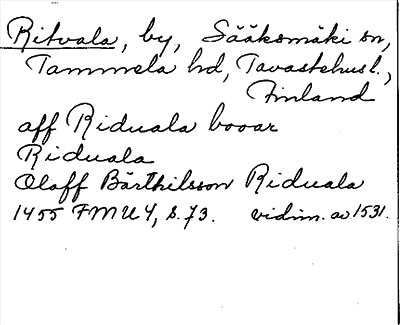 Ritvala, by, Sääksmäki sn,
Tammela hd, Tavastehusl.,
Finland
aff Riduala booar
Riduala
Olaff Bärthilsson Riduala
1455 FMU 4, s. 73. vidim. av 1531.